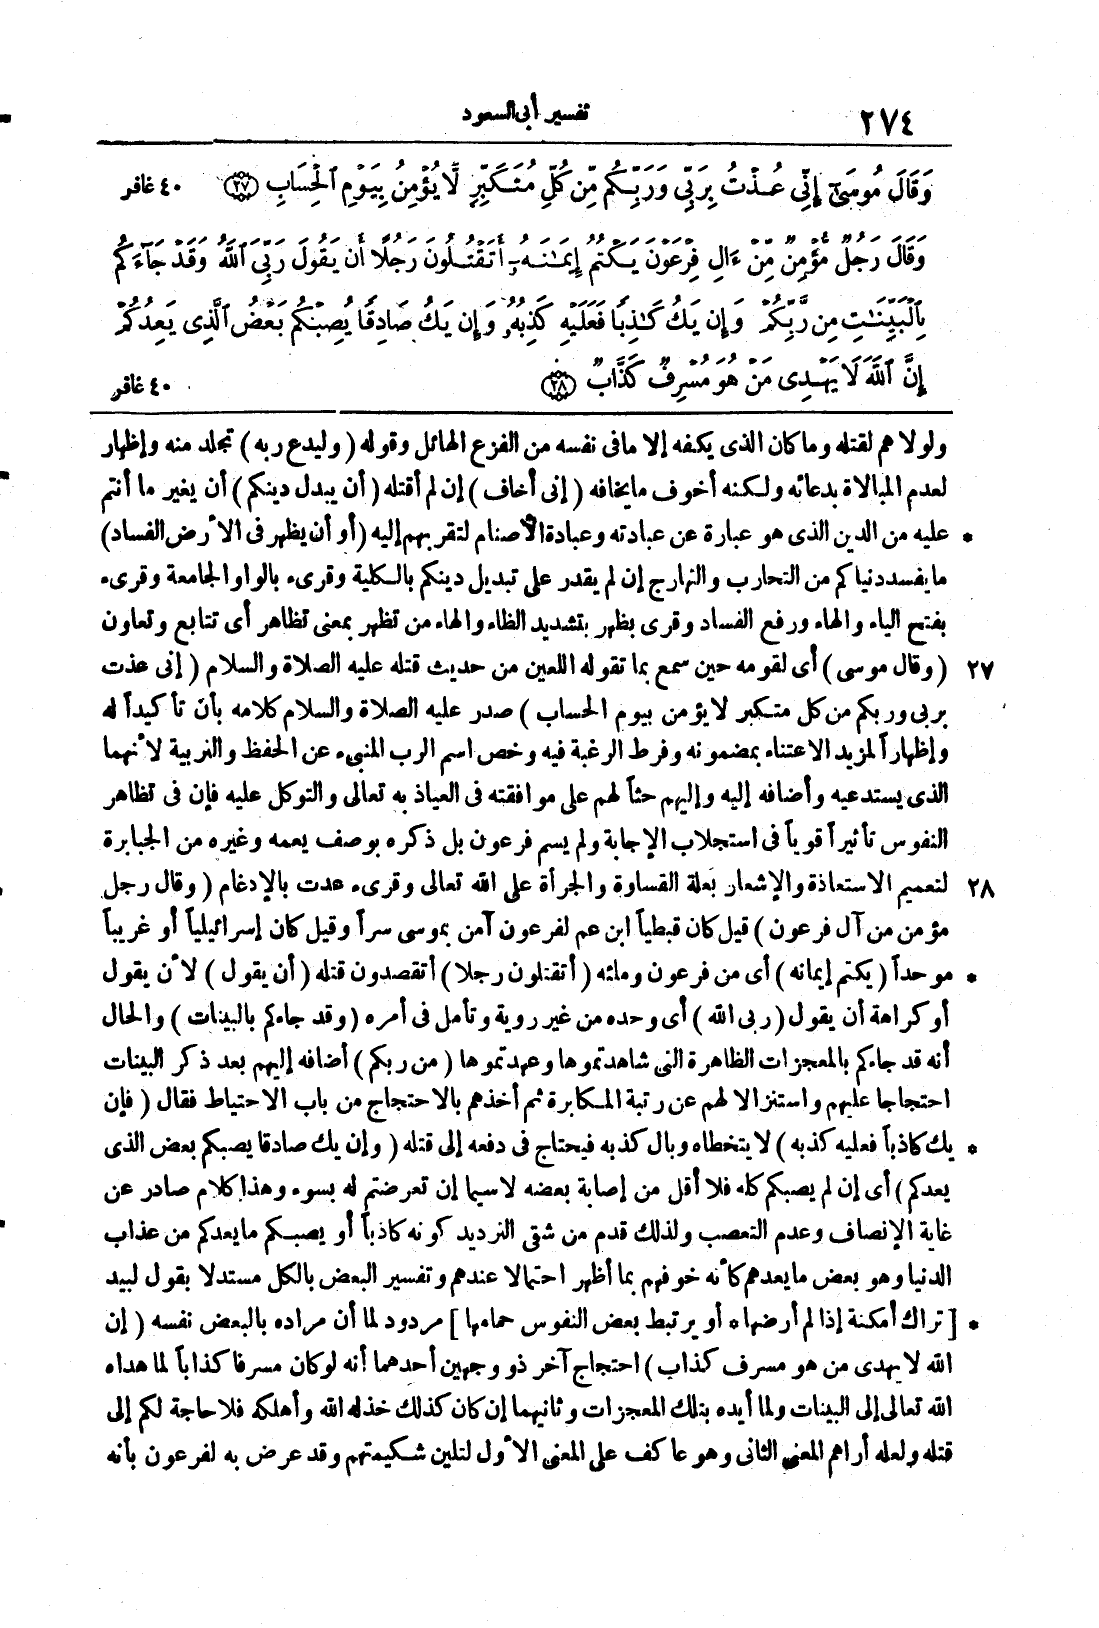 ٢٧٤ تفسير أبى السعود
وَقَالَ مُوسَىٰٓ إِنِّى عُذْتُ بِرَبِّى وَرَبِّكُم مِّن كُلِّ مُتَكَبِّرٍ لَّا يُؤْمِنُ بِيَوْمِ ٱلْحِسَابِ ﴿٢٧﴾ ٤٠ غافر
وَقَالَ رَجُلٌ مُّؤْمِنٌ مِّنْ ءَالِ فِرْعَوْنَ يَكْتُمُ إِيمَـٰنَهُۥٓ أَتَقْتُلُونَ رَجُلًا أَن يَقُولَ رَبِّىَ ٱللَّهُ وَقَدْ جَآءَكُم
بِٱلْبَيِّنَـٰتِ مِن رَّبِّكُمْ وَإِن يَكُ كَـٰذِبًا فَعَلَيْهِ كَذِبُهُۥ وَإِن يَكُ صَادِقًا يُصِبْكُم بَعْضُ ٱلَّذِى يَعِدُكُمْ
إِنَّ ٱللَّهَ لَا يَهْدِى مَنْ هُوَ مُسْرِفٌ كَذَّابٌ ﴿٢٨﴾ ٤٠ غافر
ولولا هم لقتله وما كان الذى يكفه إلا مافى نفسه من الفزع الهائل وقوله ( وليدع ربه ) تجلد منه وإظهار
لعدم المبالاة بدعائه ولكنه أخوف مايخافه ( إنى أخاف ) إن لم أقتله ( أن يبدل دينكم ) أن يغير ما أنتم
* عليه من الدين الذى هو عبارة عن عبادته وعبادة الأصنام لتقربهم إليه (أو أن يظهر فى الأرض الفساد)
مايفسد دنياكم من التحارب والتهارج إن لم يقدر على تبديل دينكم بالكلية وقرىء بالواو الجامعة وقرىء
بفتح الياء والهاء ورفع الفساد وقرى يظهر بتشديد الظاء والهاء من تظهر بمعنى تظاهر أى تتابع وتعاون
٢٧ ( وقال موسى ) أى لقومه حين سمع بما تقوله اللعين من حديث قتله عليه الصلاة والسلام ( إنى عذت
بربى وربكم من كل متكبر لا يؤمن بيوم الحساب ) صدر عليه الصلاة والسلام كلامه بأن تأكيداً له
وإظهاراً لمزيد الاعتناء بمضمونه وفرط الرغبة فيه وخص اسم الرب المنبىء عن الحفظ والتربية لأنهما
الذى يستدعيه وأضافه إليه وإليهم حثاً لهم على موافقته فى العياذ به تعالى والتوكل عليه فإن فى تظاهر
النفوس تأثيراً قوياً فى استجلاب الإجابة ولم يسم فرعون بل ذكره بوصف يعمه وغيره من الجبابرة
٢٨ لتعميم الاستعاذة والإشعار بعلة القساوة والجرأة على الله تعالى وقرىء عدت بالإدغام ( وقال رجل
مؤمن من آل فرعون ) قيل كان قبطياً ابن عم لفرعون آمن بموسى سراً وقيل كان إسرائيلياً أو غريباً
* موحداً ( يكتم إيمانه ) أى من فرعون وملئه ( أتقتلون رجلا ) أتقصدون قتله ( أن يقول ) لأن يقول
أو كراهة أن يقول ( ربى الله ) أى وحده من غير روية وتأمل فى أمره ( وقد جاءكم بالبينات ) والحال
أنه قد جاءكم بالمعجزات الظاهرة التى شاهدتموها وعهدتموها ( من ربكم ) أضافه إليهم بعد ذكر البينات
احتجاجا عليهم واستنزالا لهم عن رتبة المكابرة ثم أخذهم بالاحتجاج من باب الاحتياط فقال ( فإن
* يك كاذباً فعليه كذبه ) لا يتخطاه وبال كذبه فيحتاج فى دفعه إلى قتله ( وإن يك صادقا يصبكم بعض الذى
يعدكم ) أى إن لم يصبكم كله فلا أقل من إصابة بعضه لاسيما إن تعرضتم له بسوء وهذا كلام صادر عن
غاية الإنصاف وعدم التعصب ولذلك قدم من شقى الترديد كونه كاذباً أو يصبكم مايعدكم من عذاب
الدنيا وهو بعض مايعدهم كأنه خوفهم بما أظهر احتمالا عندهم وتفسير البعض بالكل مستدلا بقول لبيد
* [ تراك أمكنة إذا لم أرضها * أو يرتبط بعض النفوس حمامها ] مردود لما أن مراده بالبعض نفسه ( إن
الله لا يهدى من هو مسرف كذاب ) احتجاج آخر ذو وجهين أحدهما أنه لو كان مسرفا كذاباً لما هداه
الله تعالى إلى البينات ولما أيده بتلك المعجزات وثانيهما إن كان كذلك خذله الله وأهلكه فلا حاجة لكم إلى
قتله ولعله أراهم المعنى الثانى وهو عاكف على المعنى الأول لتلين شكيمتهم وقد عرض به لفرعون بأنه